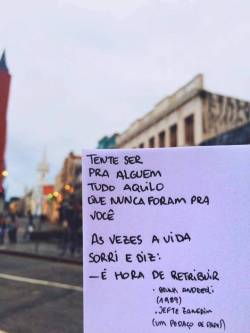 TENTE SER
PRA ALGUEM
TUDO AQUILO
QUE NUNCA FORAM PRA
VOCÊ
AS VEZES A VIDA
SORRI E DIZ:
– É HORA DE RETRIBUIR
(1989)
. JEFTE
(UM PEDAÇO DE